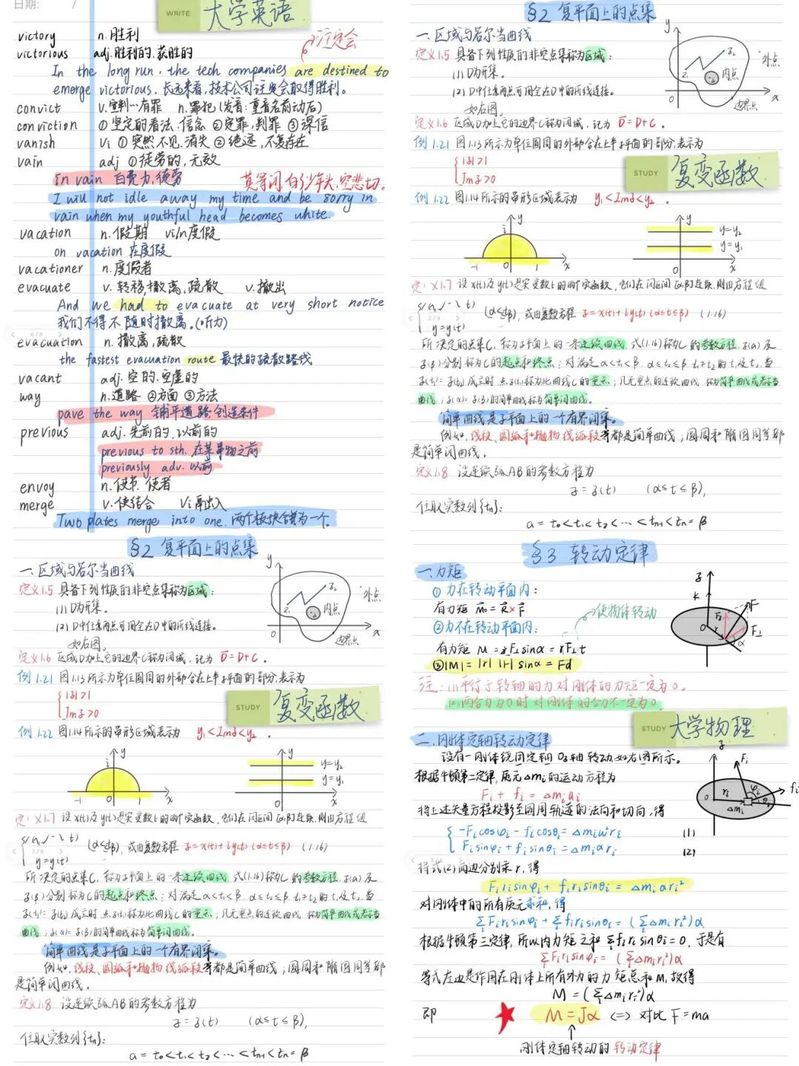 日期: /
WRITE 大学英语
victory n. 胜利
victorious adj. 胜利的, 获胜的
注定会
In the long run, the tech companies are destined to
emerge victorious. 长远来看, 技术公司注定会取得胜利。
convict v. 宣判…有罪 n. 罪犯
conviction ① 坚定的看法, 信念 ② 定罪, 判罪 ③ 深信
vanish vi ① 突然不见, 消失 ② 绝迹, 不复存在
vain adj ① 徒劳的, 无效
In vain 白费力, 徒劳 莫等闲, 白了少年头, 空悲切。
I will not idle away my time and be sorry in
vain when my youthful head becomes white.
vacation n. 假期 vi/n 度假
on vacation 在度假
vacationer n. 度假者
evacuate v. 转移, 撤离, 疏散 v. 撤出
And we had to evacuate at very short notice
我们不得不随时撤离。(听力)
evacuation n. 撤离, 疏散
the fastest evacuation route 最快的疏散路线
vacant adj. 空的, 空虚的
way n. 道路 ② 方面 ③ 方法
pave the way 铺平道路, 创造条件
previous adj. 先前的, 以前的
previous to sth. 在某事物之前
previously adv. 以前
envoy n. 使节, 使者
merge v. 使结合
Two plates merge into one. 两个板块合为一个。
§2 复平面上的点集
一. 区域与若尔当曲线
定义1.5 具备下列性质的非空点集称为区域:
(1) D为开集.
(2) D中任意两点可用全在D中的折线连接.
如左图.
y
z₁
z₂
内点
外点
边界点
x
定义1.6 区域D加上它的边界C称为闭域, 记为 D̄ = D + C.
例1.21 图1.13所示为单位圆周的外部含在上半z平面的部分, 表示为
{ |z| > 1
Im z > 0
STUDY 复变函数
例1.22 图1.14所示的带形区域表示为 y₁ < Im z < y₂.
y
i
-1 1 x
y
y = y₂
y = y₁
x
1.7 设x(t)及y(t)是实变数t的两个实函数, 在闭区间[α,β]连续, 则由方程组
y = y(t) (α≤t≤β), 或由复数方程 z = x(t) + iy(t) (α≤t≤β) (1.16)
所决定的点集C, 称为z平面上的一条连续曲线. 式(1.16)称为C的参数方程, z(α)及
z(β)分别称为C的起点和终点; 对满足 α<t₁<β, α≤t₂≤β, t₁≠t₂的t₁及t₂, 当
z(t₁) = z(t₂)成立时, 点z(t₁)称为此曲线C的重点; 凡无重点的连续曲线, 称为简单曲线或若尔当
曲线; z(α) = z(β)的简单曲线称为简单闭曲线.
简单曲线是z平面上的一个有界闭集.
例如, 线段、圆弧和抛物线弧段等都是简单曲线; 圆周和椭圆周等都
是简单闭曲线.
定义1.8 设连续弧AB的参数方程为
z = z(t) (α≤t≤β),
任取实数列{tₙ}:
α = t₀ < t₁ < t₂ < ⋯ < tₙ₋₁ < tₙ = β
§2 复平面上的点集
一. 区域与若尔当曲线
定义1.5 具备下列性质的非空点集称为区域:
(1) D为开集.
(2) D中任意两点可用全在D中的折线连接.
如左图.
y
z₁
z₂
内点
外点
边界点
x
定义1.6 区域D加上它的边界C称为闭域, 记为 D̄ = D + C.
例1.21 图1.13所示为单位圆周的外部含在上半z平面的部分, 表示为
{ |z| > 1
Im z > 0
STUDY 复变函数
例1.22 图1.14所示的带形区域表示为 y₁ < Im z < y₂.
y
i
-1 1 x
y
y = y₂
y = y₁
x
1.7 设x(t)及y(t)是实变数t的两个实函数, 在闭区间[α,β]连续, 则由方程组
y = y(t) (α≤t≤β), 或由复数方程 z = x(t) + iy(t) (α≤t≤β) (1.16)
所决定的点集C, 称为z平面上的一条连续曲线. 式(1.16)称为C的参数方程, z(α)及
z(β)分别称为C的起点和终点; 对满足 α<t₁<β, α≤t₂≤β, t₁≠t₂的t₁及t₂, 当
z(t₁) = z(t₂)成立时, 点z(t₁)称为此曲线C的重点; 凡无重点的连续曲线, 称为简单曲线或若尔当
曲线; z(α) = z(β)的简单曲线称为简单闭曲线.
简单曲线是z平面上的一个有界闭集.
例如, 线段、圆弧和抛物线弧段等都是简单曲线; 圆周和椭圆周等都
是简单闭曲线.
定义1.8 设连续弧AB的参数方程为
z = z(t) (α≤t≤β),
任取实数列{tₙ}:
α = t₀ < t₁ < t₂ < ⋯ < tₙ₋₁ < tₙ = β
§3 转动定律
一. 力矩
① 力在转动平面内:
有力矩 M = R × F 使物体转动
② 力不在转动平面内:
有力矩 M = rF₂ sinα = rF₂t
③ |M| = |r| |F| sinα = Fd
注: (1) 平行于转轴的力对刚体的力矩一定为0.
(2) 两合力为0时对刚体的合力不一定为0.
STUDY 大学物理
二. 刚体定轴转动定律
设有一刚体绕固定轴Oz轴转动, 如右图所示.
根据牛顿第二定律, 质元Δmᵢ的运动方程为
Fᵢ + fᵢ = Δmᵢaᵢ
将上述矢量方程投影至圆周轨迹的法向和切向, 得
{ -Fᵢcosφᵢ - fᵢcosθᵢ = Δmᵢω²rᵢ (1)
Fᵢsinφᵢ + fᵢsinθᵢ = Δmᵢαrᵢ (2)
将式(2)两边分别乘rᵢ得
Fᵢrᵢsinφᵢ + fᵢrᵢsinθᵢ = Δmᵢαrᵢ²
对刚体中的所有质元求和, 得
ΣFᵢrᵢsinφᵢ + Σfᵢrᵢsinθᵢ = (ΣΔmᵢrᵢ²)α
根据牛顿第三定律, 所以内力矩之和 Σfᵢrᵢsinθᵢ = 0, 于是有
ΣFᵢrᵢsinφᵢ = (ΣΔmᵢrᵢ²)α
等式左边是作用在刚体上所有外力的力矩总和M, 故得
M = (ΣΔmᵢrᵢ²)α
即 M = Jα ⇔ 对比 F = ma
刚体定轴转动的转动定律